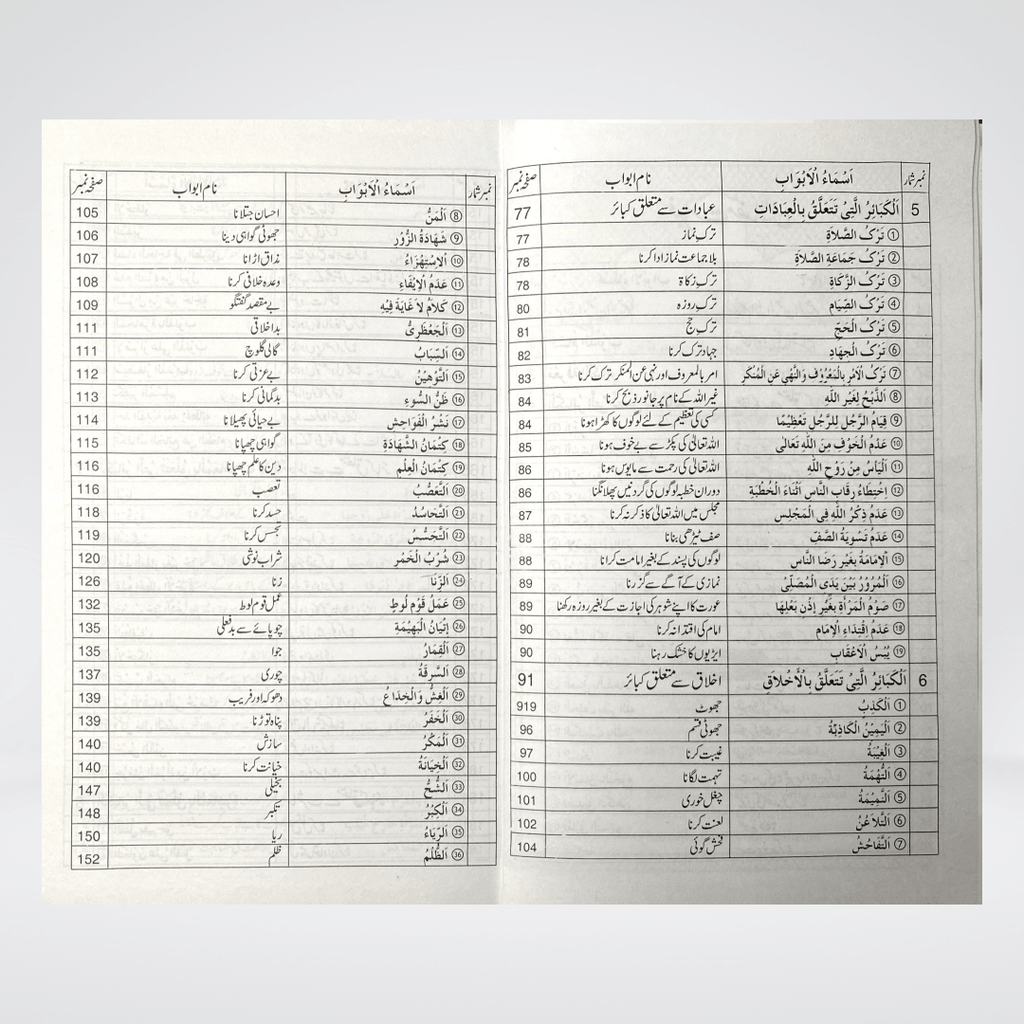 نمبر شمار اَسْمَاءُ الْاَبْوَابِ نام ابواب صفحہ نمبر
5 اَلْكَبَائِرُ الَّتِیْ تَتَعَلَّقُ بِالْعِبَادَاتِ عبادات سے متعلق کبائر 77
① تَرْکُ الصَّلَاۃِ ترکِ نماز 77
② تَرْکُ جَمَاعَةِ الصَّلَاۃِ بلا جماعت نماز ادا کرنا 78
③ تَرْکُ الزَّکَاۃِ ترکِ زکاۃ 78
④ تَرْکُ الصِّیَامِ ترکِ روزہ 80
⑤ تَرْکُ الْحَجِّ ترکِ حج 81
⑥ تَرْکُ الْجِهَادِ جہاد ترک کرنا 82
⑦ تَرْکُ الْاَمْرِ بِالْمَعْرُوْفِ وَالنَّهْیِ عَنِ الْمُنْكَرِ امر بالمعروف اور نہی عن المنکر ترک کرنا 83
⑧ اَلذَّبْحُ لِغَیْرِ اللّٰهِ غیر اللہ کے نام پر جانور ذبح کرنا 84
⑨ قِیَامُ الرَّجُلِ لِلرَّجُلِ تَعْظِیْمًا کسی کی تعظیم کے لئے لوگوں کا کھڑا ہونا 84
⑩ عَدَمُ الْخَوْفِ مِنَ اللّٰهِ تَعَالٰی اللہ تعالیٰ کی پکڑ سے بے خوف ہونا 85
⑪ اَلْیَاْسُ مِنْ رَوْحِ اللّٰهِ اللہ تعالیٰ کی رحمت سے مایوس ہونا 86
⑫ اِخْتِطَاءُ رِقَابِ النَّاسِ اَثْنَاءَ الْخُطْبَةِ دوران خطبہ لوگوں کی گردنیں پھلانگنا 86
⑬ عَدَمُ ذِکْرُ اللّٰهِ فِی الْمَجْلِسِ مجلس میں اللہ تعالیٰ کا ذکر نہ کرنا 87
⑭ عَدَمُ تَسْوِیَةُ الصَّفِّ صف ٹیڑھی بنانا 88
⑮ اَلْاِمَامَةُ بِغَیْرِ رَضَا النَّاسِ لوگوں کی پسند کے بغیر امامت کرانا 88
⑯ اَلْمُرُوْرُ بَیْنَ یَدَیِ الْمُصَلِّیْ نمازی کے آگے سے گزرنا 89
⑰ صَوْمُ الْمَرْاَۃِ بِغَیْرِ اِذْنِ بَعْلِهَا عورت کا اپنے شوہر کی اجازت کے بغیر روزہ رکھنا 89
⑱ عَدَمُ اِقْتِدَاءِ الْاِمَامِ امام کی اقتدا نہ کرنا 90
⑲ یُبْسُ الْاَعْقَابِ ایڑیوں کا خشک رہنا 90
6 اَلْكَبَائِرُ الَّتِیْ تَتَعَلَّقُ بِالْاَخْلَاقِ اخلاق سے متعلق کبائر 91
① اَلْکَذِبُ جھوٹ 919
② اَلْیَمِیْنُ الْکَاذِبَةُ جھوٹی قسم 96
③ اَلْغِیْبَةُ غیبت کرنا 97
④ اَلتُّهْمَةُ تہمت لگانا 100
⑤ اَلنَّمِیْمَةُ چغل خوری 101
⑥ اَلتَّلَاعُنُ لعنت کرنا 102
⑦ اَلتَّفَاحُشُ فحش گوئی 104
نمبر شمار اَسْمَاءُ الْاَبْوَابِ نام ابواب صفحہ نمبر
⑧ اَلْمَنُّ احسان جتلانا 105
⑨ شَهَادَۃُ الزُّوْرِ جھوٹی گواہی دینا 106
⑩ اَلْاِسْتِهْزَاءُ مذاق اڑانا 107
⑪ عَدَمُ الْاِیْفَاءِ وعدہ خلافی کرنا 108
⑫ کَلَامٌ لَا غَایَةَ فِیْهِ بے مقصد گفتگو 109
⑬ اَلْجَعْظَرِیُّ بد اخلاقی 111
⑭ اَلسِّبَابُ گالی گلوچ 111
⑮ اَلتَّوْهِیْنُ بے عزتی کرنا 112
⑯ ظَنُّ السُّوْءِ بدگمانی کرنا 113
⑰ نَشْرُ الْفَوَاحِشِ بے حیائی پھیلانا 114
⑱ کِتْمَانُ الشَّهَادَۃِ گواہی چھپانا 115
⑲ کِتْمَانُ الْعِلْمِ دین کا علم چھپانا 116
⑳ اَلتَّعَصُّبُ تعصب 116
㉑ اَلتَّحَاسُدُ حسد کرنا 118
㉒ اَلتَّجَسُّسُ تجسس کرنا 119
㉓ شُرْبُ الْخَمْرِ شراب نوشی 120
㉔ اَلزِّنَا زنا 126
㉕ عَمَلُ قَوْمِ لُوْطٍ عمل قوم لوط 132
㉖ اِتْیَانُ الْبَهِیْمَةِ چوپائے سے بدفعلی 135
㉗ اَلْقِمَارُ جوا 135
㉘ اَلسَّرِقَةُ چوری 137
㉙ اَلْغِشُّ وَالْخِدَاعُ دھوکہ اور فریب 139
㉚ اَلْخَفَرُ پناہ توڑنا 139
㉛ اَلْمَکْرُ سازش 140
㉜ اَلْخِیَانَةُ خیانت کرنا 140
㉝ اَلشُّحُّ بخیلی 147
㉞ اَلْکِبْرُ تکبر 148
㉟ اَلرِّیَاءُ ریا 150
㊱ اَلظُّلْمُ ظلم 152